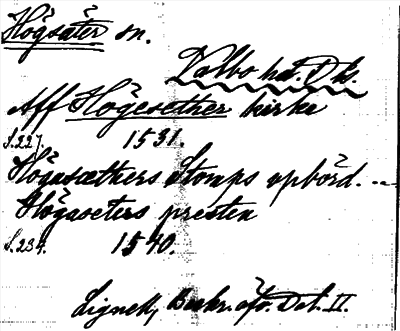 Högsäter sn.
Valbo hd. Ds.
Aff Högesether kirke
S.227. 1531.
Högasæthers Stomps upbörd. ---
Högaseters presten
S.234. 1540.
Lignell, Beskr. öfv. Dal. II.